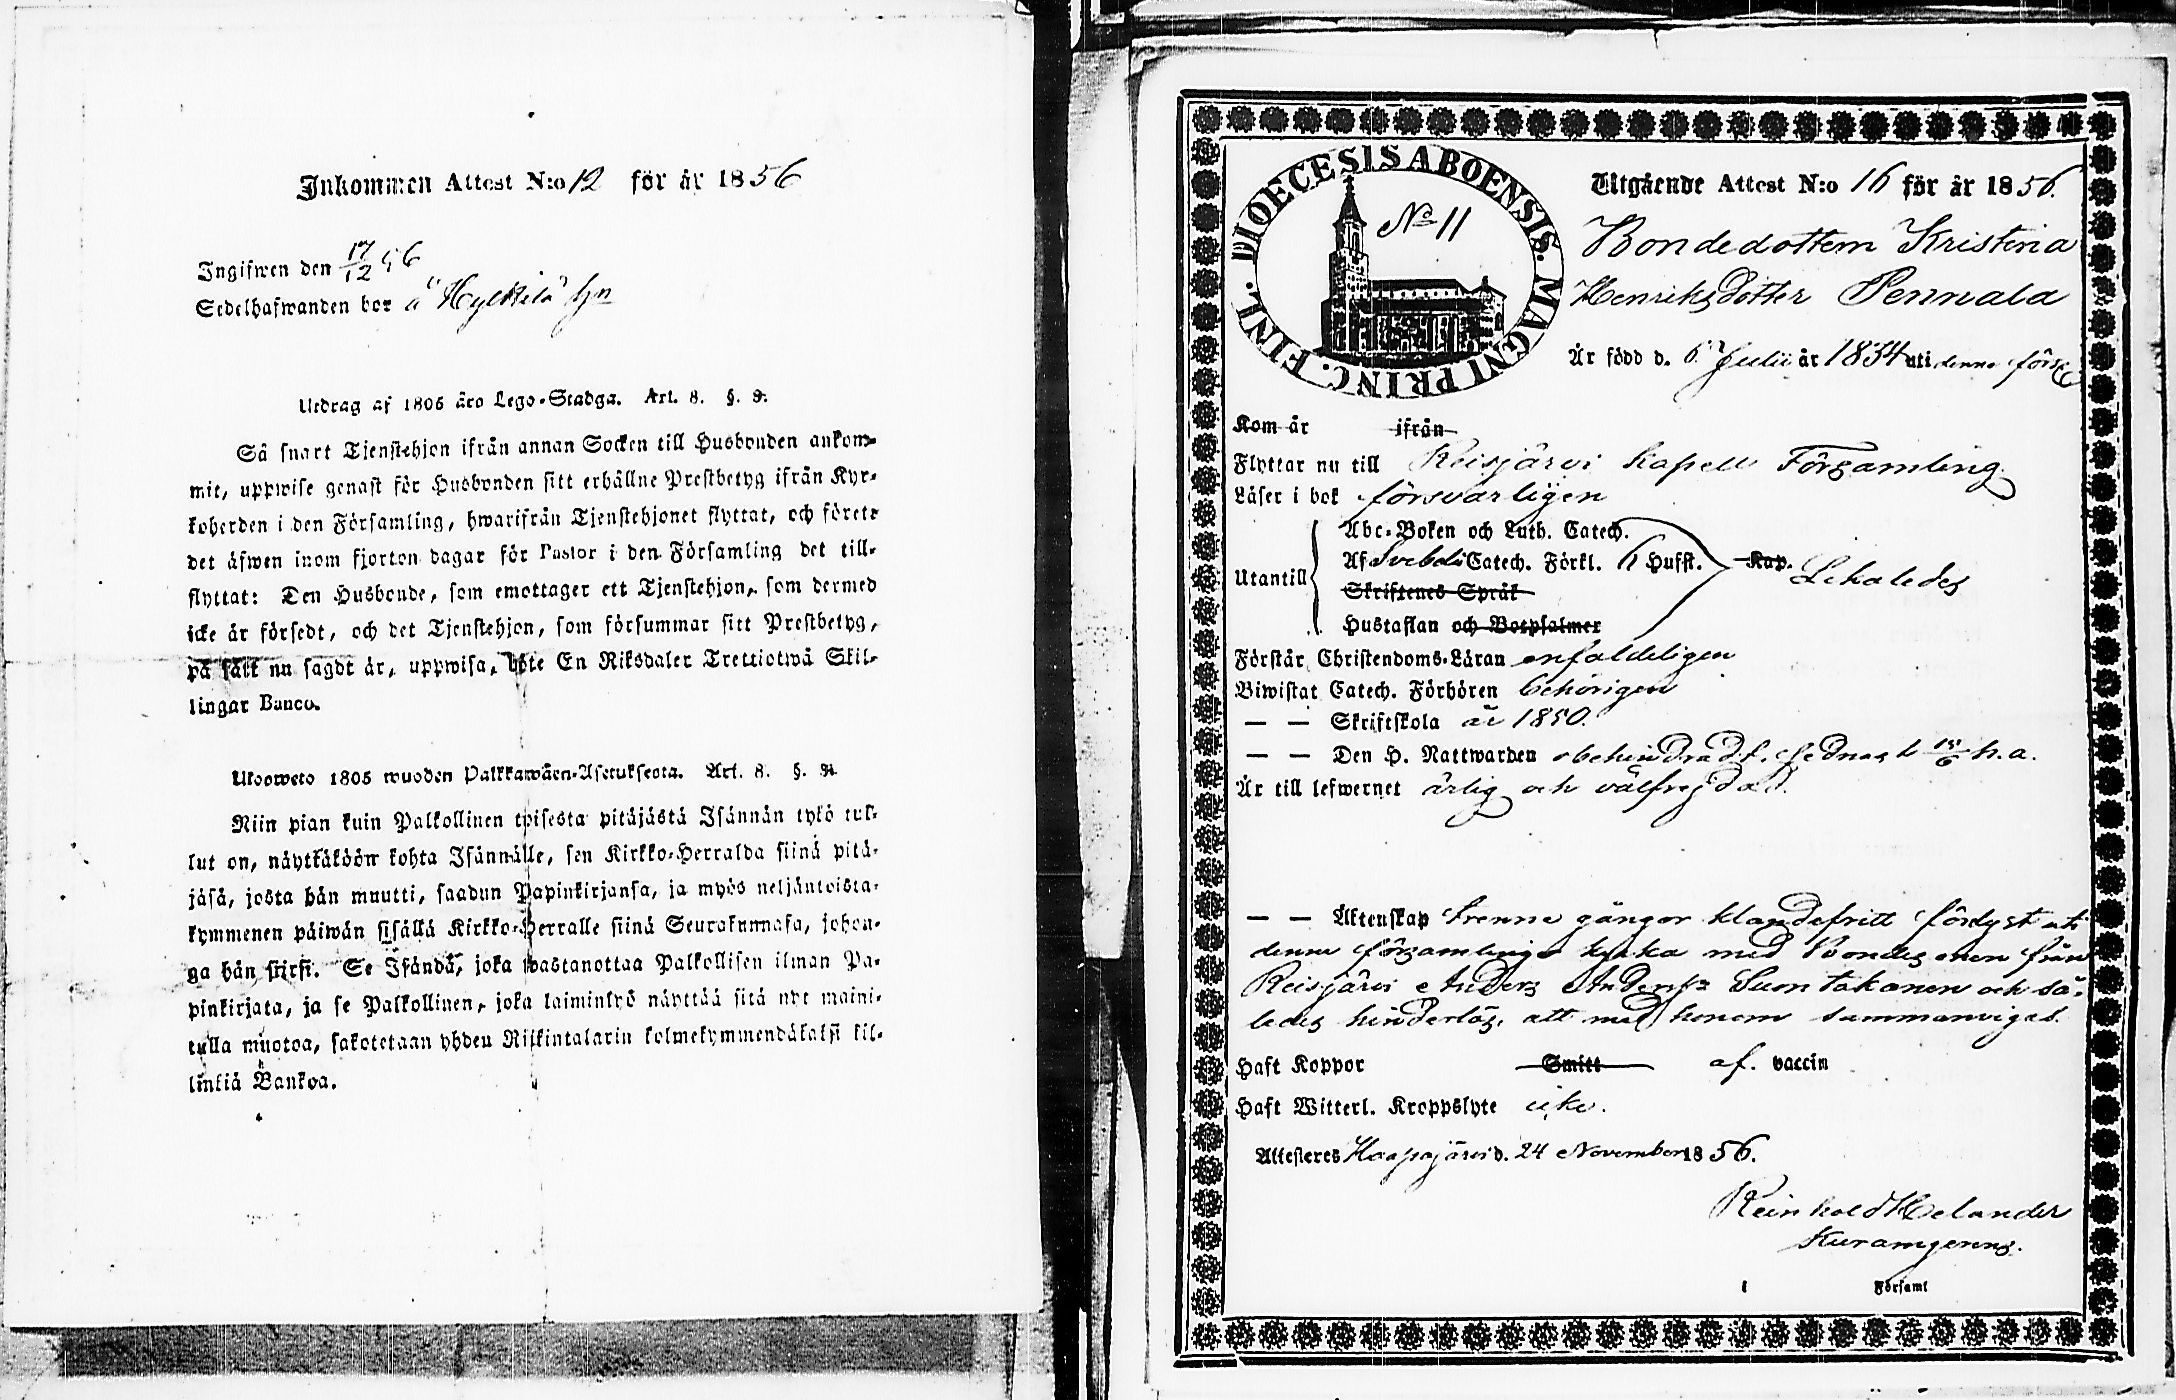 Inkommen Attest N:o 12 för år 1856
Ingifwen den 17/12 56
Sedelhafwanden bor å Hylkilä hn
Utdrag af 1805 års Lego-Stadga. Art. 8. §. 9.
Så snart Tjenstehjon ifrån annan Socken till Husbonden ankom-
mit, uppwise genast för Husbonden sitt erhållne Prestbetyg ifrån Kyr-
koherden i den Församling, hwarifrån Tjenstehjonet flyttat, och förete
det äfwen inom fjorton dagar för Pastor i den Församling det till-
flyttat: Den Husbonde, som emottager ett Tjenstehjon, som dermed
icke är försedt, och det Tjenstehjon, som försummar sitt Prestbetyg,
på sätt nu sagdt är, uppwisa, böte En Riksdaler Trettiotwå Skil-
lingar Banco.
Ulosweto 1805 wuoden Palkkawäen-Asetuksesta. Art. 8. §. 9.
Niin pian kuin Palkollinen toisesta pitäjästä Isännän tykö tul-
lut on, näyttäköön kohta Isännälle, sen Kirkko-Herralda siinä pitä-
jäsä, josta hän muutti, saadun Papinkirjansa, ja myös neljäntoista-
kymmenen päiwän sisällä Kirkko-Herralle siinä Seurakunnasa, johon-
ga hän siirsi. Se Isändä, joka wastanottaa Palkollisen ilman Pa-
pinkirjata, ja se Palkollinen, joka laiminlyö näyttää sitä nyt maini-
tulla muotoa, sakotetaan yhden Riikintalarin kolmekymmendäkaksi kil-
linkiä Bankoa.
DIOECESIS ABOENSIS. MAGNI PRINC. FINL.
No 11
Utgående Attest N:o 16 för år 1856.
Bondedottern Kristina
Henriksdotter Pennala
Är född d. 6 Julii år 1834 uti denna förs.
Kom år ifrån
Flyttar nu till Reisjärvi Kapell Församling
Läser i bok försvarligen
Utantill
Abc-Boken och Luth. Catech.
Af Svebeli Catech. Förkl. 6 Hufst. Kap. Likaledes
Skriftenes Språk
Hustaflan och Botpsalmer
Förstår Christendoms-Läran enfaldeligen
Biwistat Catech. Förhören behörigen
— — Skriftskola år 1850.
— — Den H. Nattwarden obehindradt, sednast 15/6 h.a.
Är till lefwernet ärlig och välfrejdad.
— — Äktenskap trenne gånger klanderfritt förlyst uti
denne församlings kyrka med Bondesonen från
Reisjärvi Anders Andersson Suontakanen och så-
ledes hinderlös, att med honom sammanvigas.
Haft Koppor Smitt af. vaccin
Haft Witterl. Kroppslyte icke.
Attesteres Haapajärvi d. 24 November 1856.
Reinhold Helander
Församl